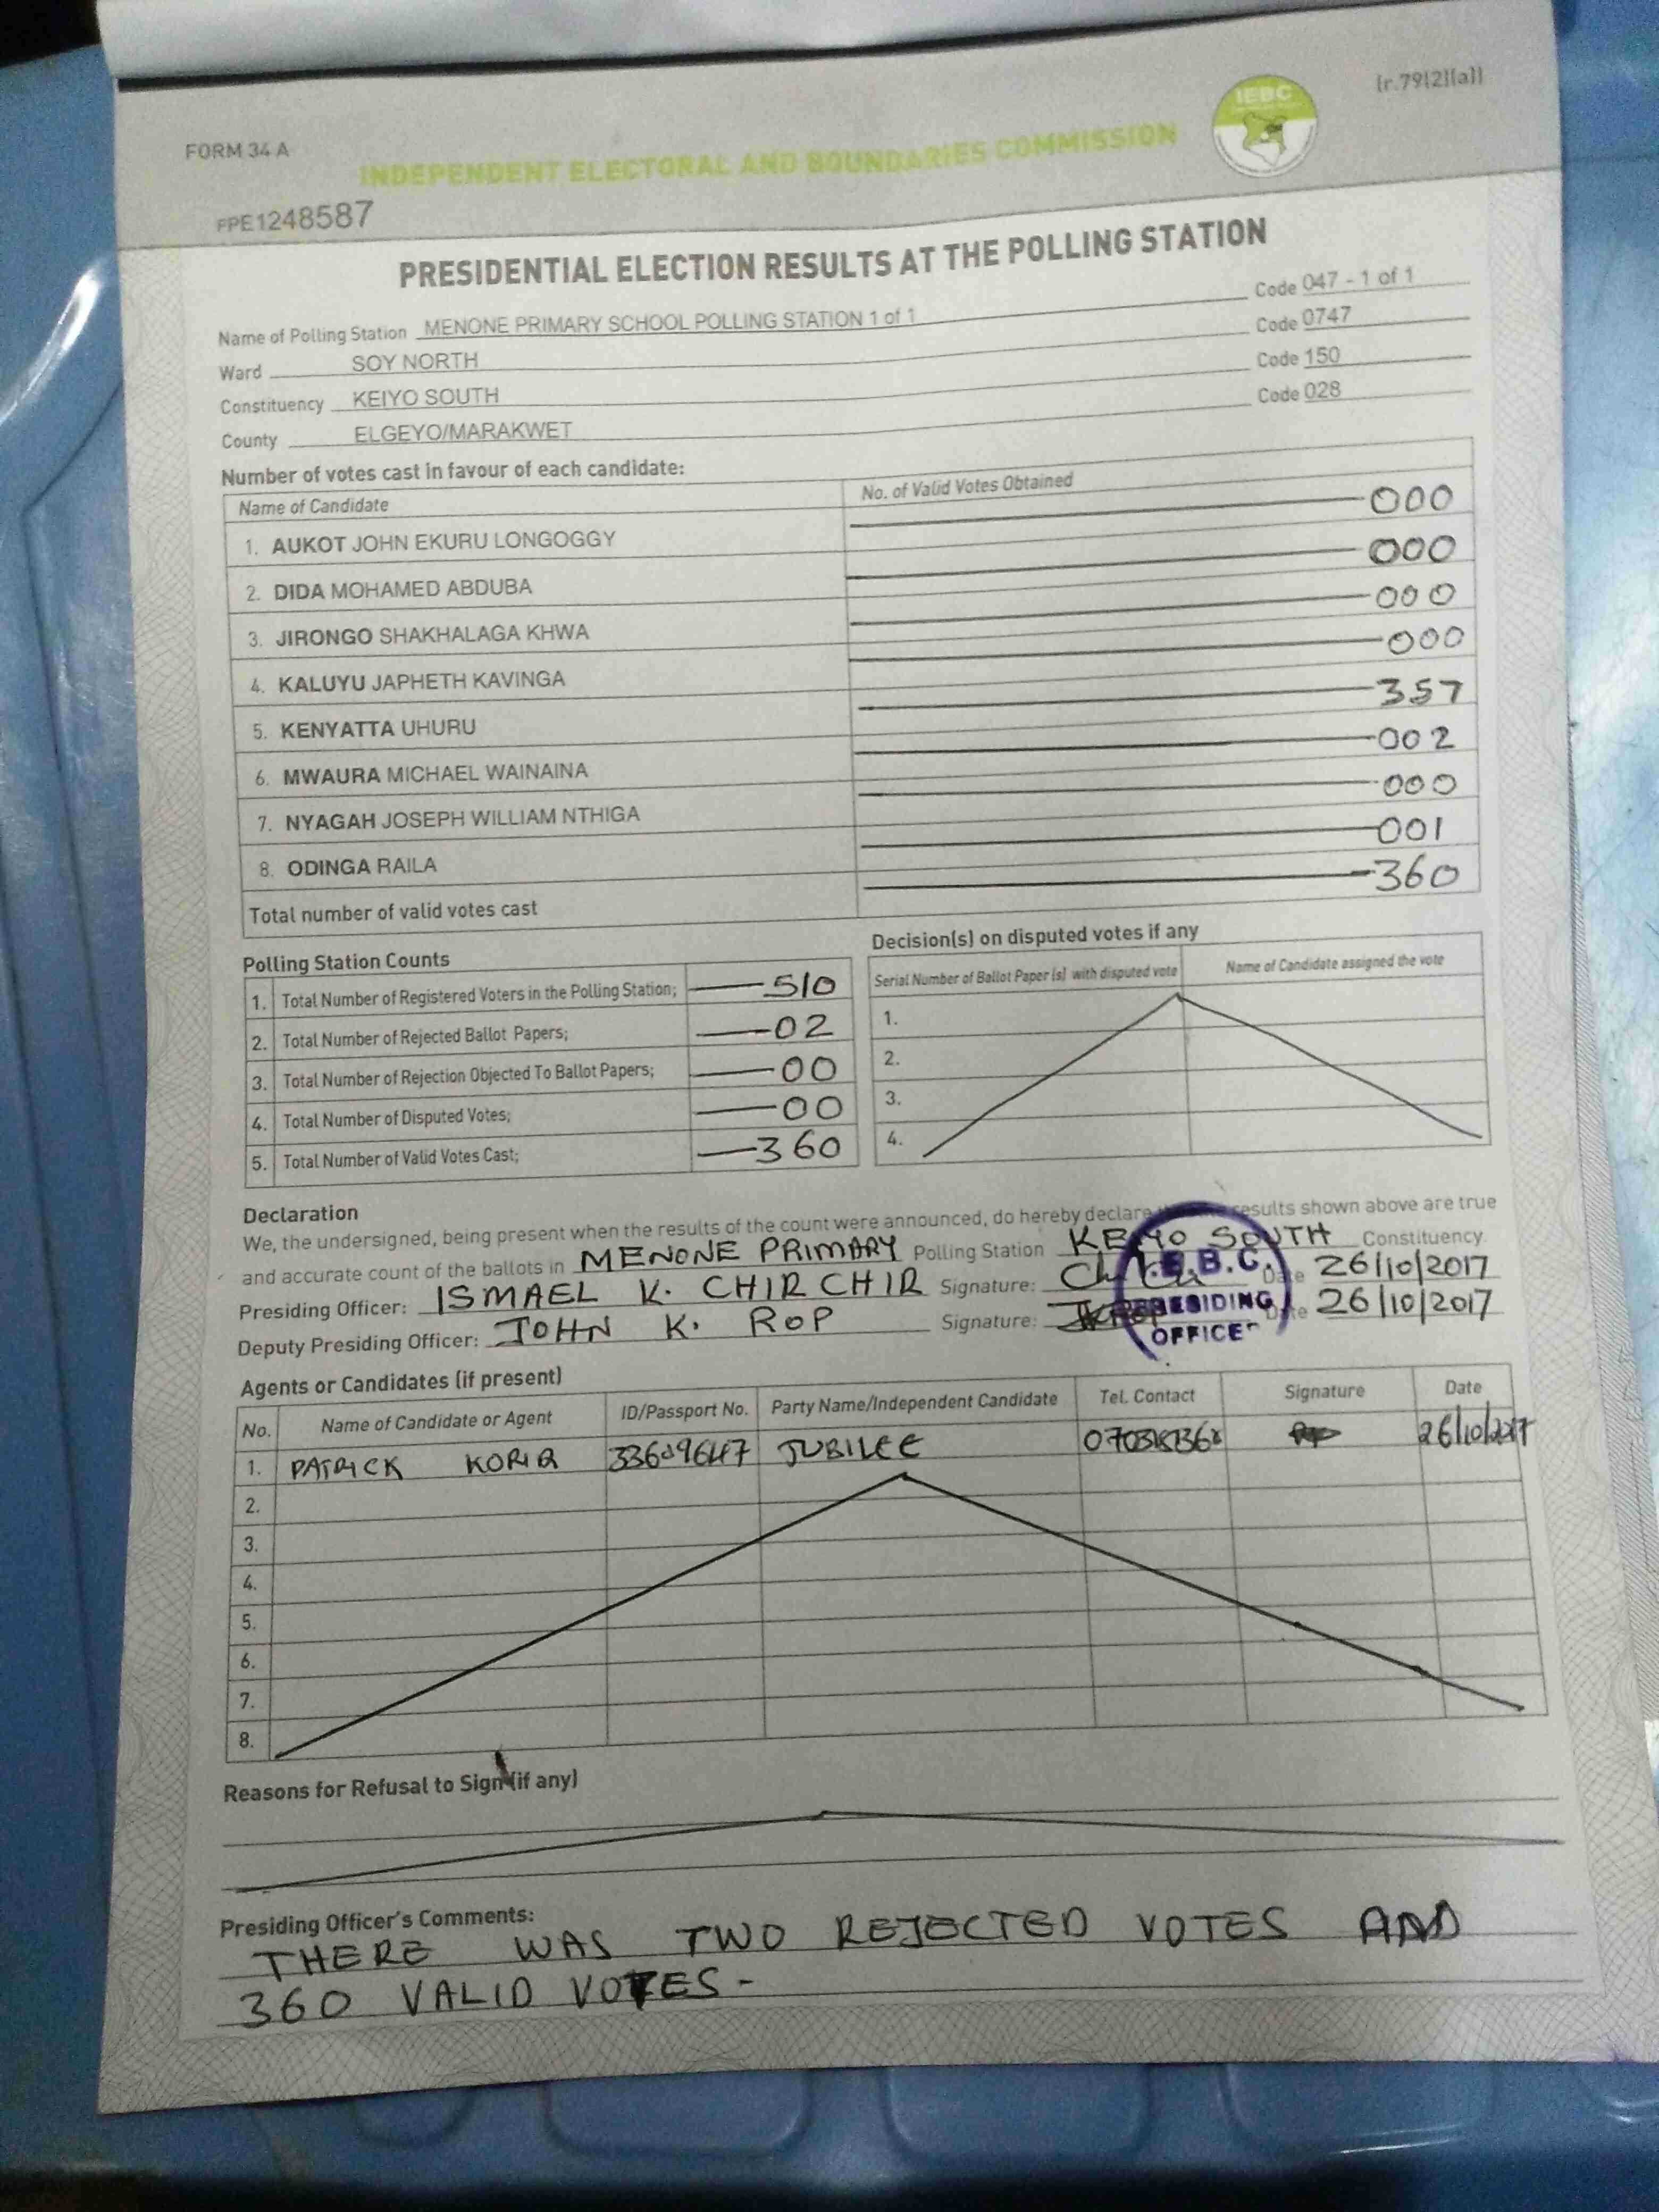 [r.79(2)(a)]
IEBC
FORM 34 A
INDEPENDENT ELECTORAL AND BOUNDARIES COMMISSION
FPE1248587
PRESIDENTIAL ELECTION RESULTS AT THE POLLING STATION
Name of Polling Station MENONE PRIMARY SCHOOL POLLING STATION 1 of 1 Code 047 - 1 of 1
Ward SOY NORTH Code 0747
Constituency KEIYO SOUTH Code 150
County ELGEYO/MARAKWET Code 028
Number of votes cast in favour of each candidate:
Name of Candidate No. of Valid Votes Obtained
1. AUKOT JOHN EKURU LONGOGGY 000
2. DIDA MOHAMED ABDUBA 000
3. JIRONGO SHAKHALAGA KHWA 000
4. KALUYU JAPHETH KAVINGA 000
5. KENYATTA UHURU 357
6. MWAURA MICHAEL WAINAINA 002
7. NYAGAH JOSEPH WILLIAM NTHIGA 000
8. ODINGA RAILA 001
Total number of valid votes cast 360
Polling Station Counts
1. Total Number of Registered Voters in the Polling Station; 510
2. Total Number of Rejected Ballot Papers; 02
3. Total Number of Rejection Objected To Ballot Papers; 00
4. Total Number of Disputed Votes; 00
5. Total Number of Valid Votes Cast; 360
Decision(s) on disputed votes if any
Serial Number of Ballot Paper(s) with disputed vote Name of Candidate assigned the vote
1.
2.
3.
4.
Declaration
We, the undersigned, being present when the results of the count were announced, do hereby declare results shown above are true
and accurate count of the ballots in MENONE PRIMARY Polling Station KEIYO SOUTH Constituency
Presiding Officer: ISMAEL K. CHIRCHIR Signature: Date 26/10/2017
Deputy Presiding Officer: JOHN K. ROP Signature: Date 26/10/2017
I.E.B.C.
PRESIDING
OFFICER
Agents or Candidates (if present)
No. Name of Candidate or Agent ID/Passport No. Party Name/Independent Candidate Tel. Contact Signature Date
1. PATRICK KORIR JUBILEE 26/10/2017
2.
3.
4.
5.
6.
7.
8.
Reasons for Refusal to Sign (if any)
Presiding Officer's Comments:
THERE WAS TWO REJECTED VOTES AND
360 VALID VOTES-